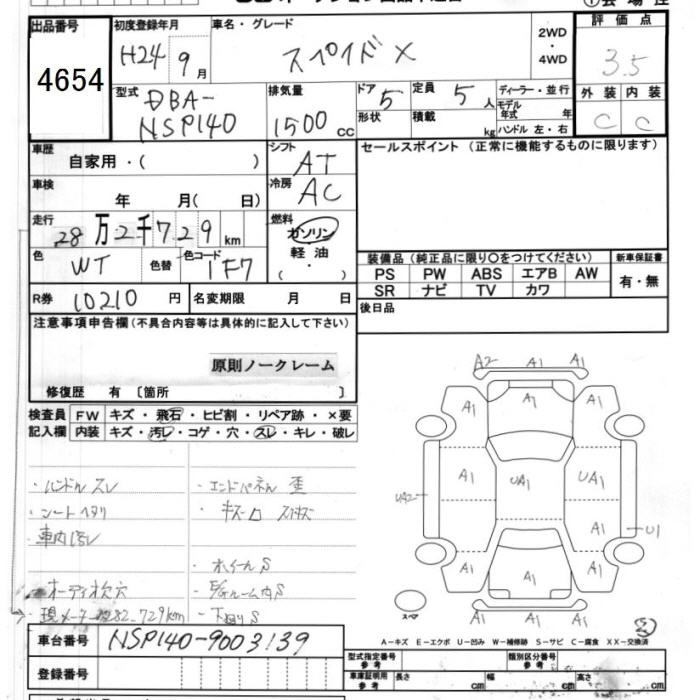 出品番号 初度登録年月 車名・グレード 2WD ・ 4WD 評価点
4654 H24 9月 スペイド X 3.5
型式 DBA-NSP140 排気量 1500cc ドア 5 定員 5人 ディーラー・並行 外装 内装
形状 積載 kg モデル年式 年 ハンドル 左・右 C C
車歴 自家用・( ) シフト AT セールスポイント (正常に機能するものに限ります)
車検 年 月( 日) 冷房 AC
走行 28万2千729km 燃料 ガソリン 軽油 ・
色 WT 色替 色コード 1F7
装備品 (純正品に限り〇をつけてください) 新車保証書
PS PW ABS エアB AW 有・無
SR ナビ TV カワ
R券 10210円 名変期限 月 日 後日品
注意事項申告欄(不具合内容等は具体的に記入して下さい)
原則ノークレーム
修復歴 有 [箇所 ]
検査員 FW キズ・飛石・ヒビ割・リペア跡・×要
記入欄 内装 キズ・汚レ・コゲ・穴・スレ・キレ・破レ
・ハンドルスレ ・エンドパネル 歪
・シートヘタリ
・車内汚レ
・ホイールS
・オーディオ欠穴 ・E/GルームS
・現メーター 282,729km ・下廻りS
A2 A1 A1
A1 A1 A1
A1 UA1 UA1
UA2 A1 U1
A1 A1 A1
A1 A1 A1
スペア
A-キズ E-エクボ U-凹み W-補修跡 S-サビ C-腐食 XX-交換済
車台番号 NSP140-9003139
登録番号
型式指定番号 参考 類別区分番号 参考
車庫証明用 参考 長さ cm 幅 cm 高さ cm